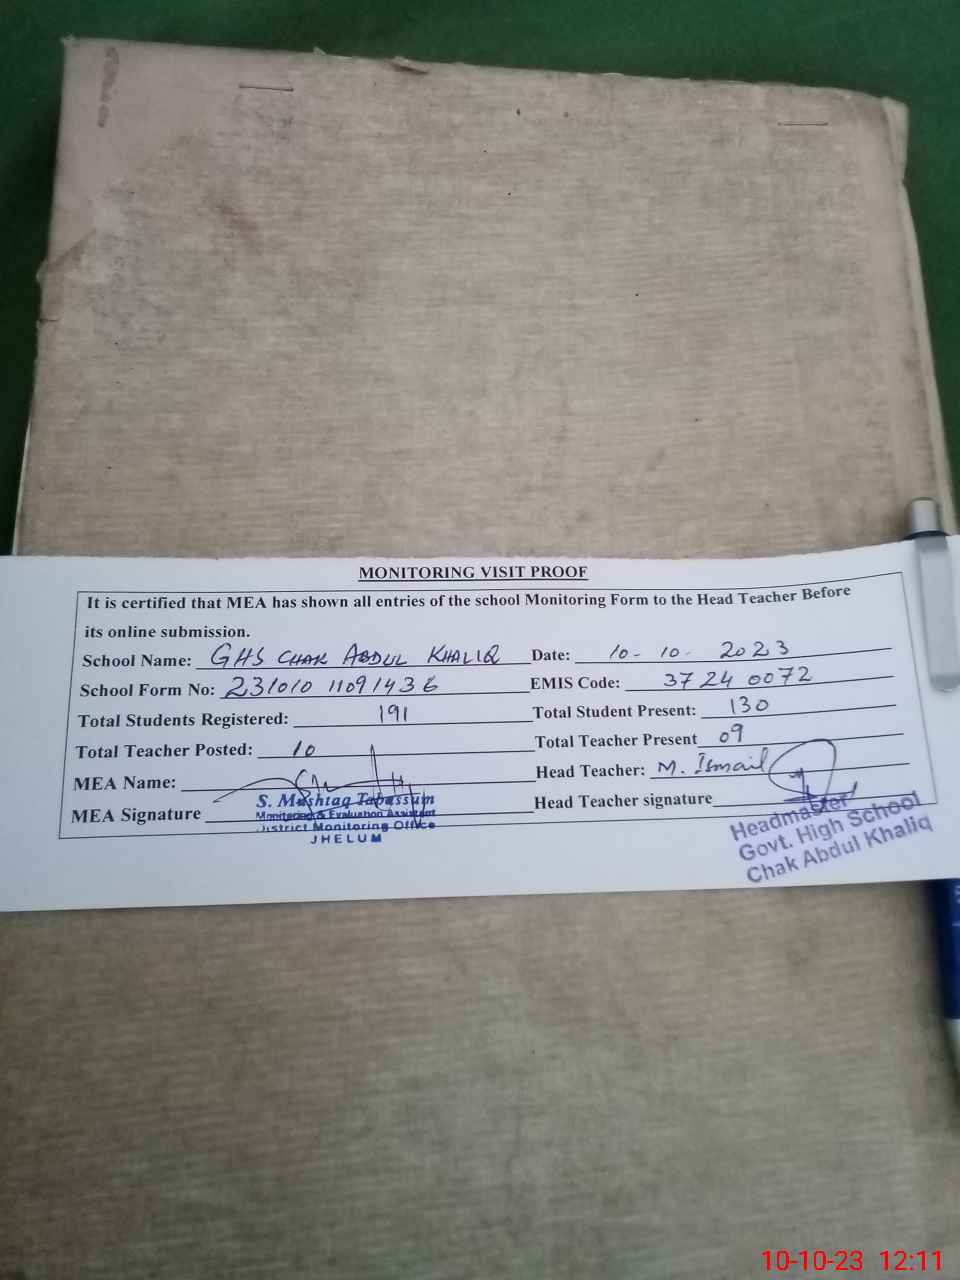 MONITORING VISIT PROOF
It is certified that MEA has shown all entries of the school Monitoring Form to the Head Teacher Before
its online submission.
School Name: GHS CHAK ABDUL KHALIQ Date: 10-10-2023
School Form No: 231010 11091436 EMIS Code: 37240072
Total Students Registered: 191 Total Student Present: 130
Total Teacher Posted: 10 Total Teacher Present 09
MEA Name: Head Teacher: M. Ismail
MEA Signature Head Teacher signature
S. Mushtaq Tabassum
Monitoring & Evaluation Assistant
District Monitoring Office
JHELUM
Headmaster
Govt. High School
Chak Abdul Khaliq
10-10-23 12:11